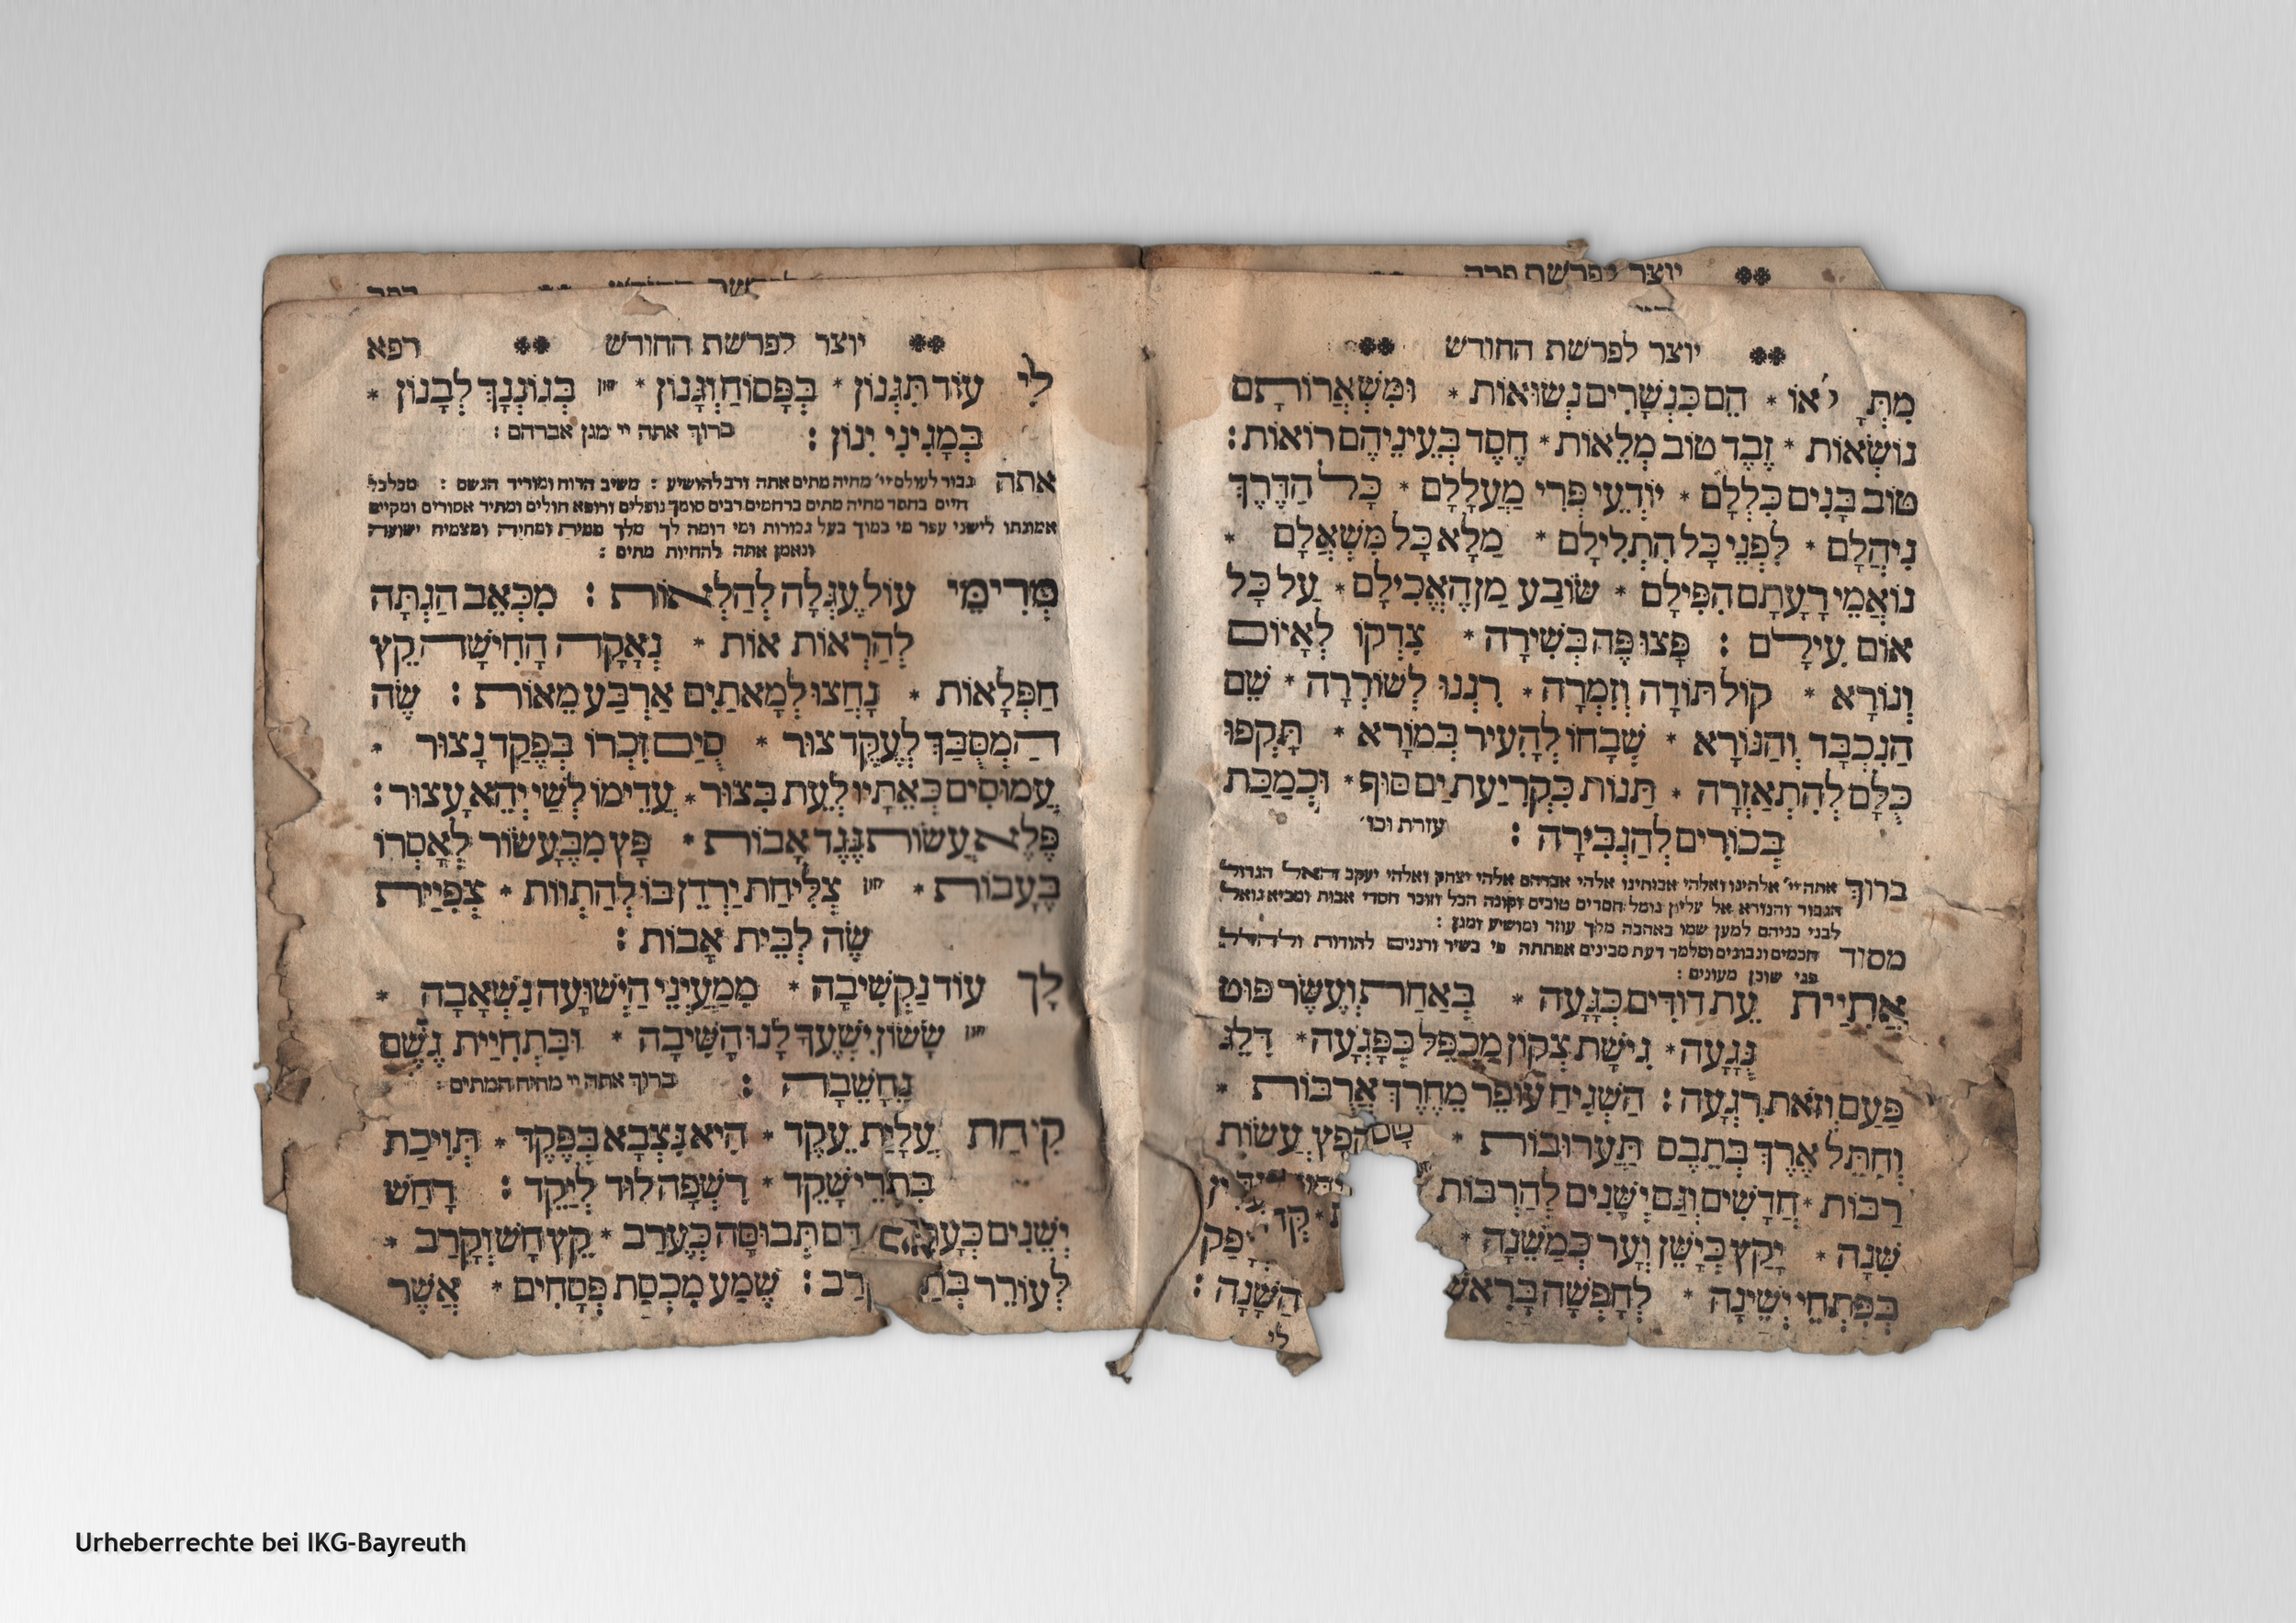 יוצר לפרשת פרה
יוצר לפרשת החודש
הֵם כִּנְשָׁרִים נְשׂוּאוֹת * וּמִשְׁאֲרוֹתָם
נוֹשְׂאוֹת * זֶבֶד טוֹב מְלֵאוֹת * חֶסֶד בְּעֵינֵיהֶם רוֹאוֹת :
טוֹב בָּנִים כִּלְלָם * יוֹדְעֵי פְּרִי מַעֲלָלָם * כָּל הַדֶּרֶךְ
נִיהֲלָם * לִפְנֵי כָּל הִתְלִילָם * מַלָא כָּל מִשְׁאֲלָם *
נוֹאֲמֵי רָעָתָם הִפִּילָם * שׂוֹבַע מַן הֶאֱכִילָם * עַל כָּל
אוֹם עִילָּם : פָּצוּ פֶּה בְּשִׁירָה * צִדְקוֹ לְאָיוֹם
וְנוֹרָא * קוֹל תּוֹדָה וְזִמְרָה * רִנְנוּ לְשׁוֹרְרָה * שֵׁם
הַנִכְבָּד וְהַנּוֹרָא * שִׁבְחוֹ לְהָעִיר בְּמוֹרָא * תָּקְפוּ
כֻּלָּם לְהִתְאַזְּרָה * תַּנּוֹת כִּקְרִיעַת יַם סוּף * וּכְמַכַּת
בְּכוֹרִים לְהַגְבִּירָה : עזרת וכו׳
ברוך אתה יי׳ אלהינו ואלהי אבותינו אלהי אברהם אלהי יצחק ואלהי יעקב האל הגדול
הגבור והנורא אל עליון גומל חסדים טובים וקונה הכל וזוכר חסדי אבות ומביא גואל
לבני בניהם למען שמו באהבה מלך עוזר ומושיע ומגן :
מסוד חכמים ונבונים ומלמד דעת מבינים אפתחה פי בשיר ורננים להודות ולהלל
פני שוכן מעונים :
אֲתִיַית עֵת דּוֹדִים כְּגָעָה * בְּאַחַת וְעֶשֶׂר פּוּט
נְגָעָה * גִישַׁת צְקוֹן מַכְפֵּל כְּפָגְעָה * דִלֵג
פַּעַם וְזֹאת רִגְעָה : הִשְׁגִיחַ עוֹפֶר מֵחֲרַךְ אֲרֻבּוֹת *
וְחִתֵּל אֶרֶךְ בְּתֵבֶם תַּעֲרוּבוֹת * שָׁם הֵפֵץ עֲשׂוֹת
רַבּוֹת * חֲדָשִׁים וְגַם יְשָׁנִים לְהַרְבּוֹת
שֵׁנָה * יָקַץ כְּיָשֵׁן וְעֵר כְּמַשְׁנֶה * יָפֵק
כְּפִתְחֵי יְשֵׁינָה * לְחָפְשָׁהּ בְּרֹאשׁ הַשָּׁנָה :
לי
יוצר לפרשת החודש רפא
לִי עוֹד תִּגְנוֹן * בְּפָסוֹחַ וְגָנוֹן * חזן בְּגוֹנְנָךְ לְבָנוֹן *
בְּמָגִינֵי יִנּוֹן : ברוך אתה יי מגן אברהם :
אתה גבור לעולם יי׳ מחיה מתים אתה ורב להושיע : משיב הרוח ומוריד הגשם : מכלכל
חיים בחסד מחיה מתים ברחמים רבים סומך נופלים ורופא חולים ומתיר אסורים ומקיים
אמונתו לישני עפר מי כמוך בעל גבורות ומי דומה לך מלך ממית ומחיה ומצמיח ישועה
ונאמן אתה להחיות מתים :
מְרִימֵי עוֹל עֶגְלָה לְהַלְאוֹת : מִכְּאֵב הַנְתָּה
לְהַרְאוֹת אוֹת * נְאָקָה הָחִישָׁה קֵץ
חַפְּלָאוֹת * נָחֲצוּ לְמָאתַיִם אַרְבַּע מֵאוֹת : שֶׂה
הַמְסֻבַּךְ לְעֶקֶד צוּר * סִיֵם זִכְרוֹ בְּפֶקֶד נָצוּר *
עֲמוּסִים כְּאֵתָיוּ לְעֵת בְּצוּר * עֲדֵימוֹ לְשַׁי יְהֵא עָצוּר :
פֶּלֶא עֲשׂוֹת נֶגֶד אָבוֹת * פָּץ מִבֶּעָשׂוֹר לְאָסְרוֹ
בַּעֲבוֹת * חזן צְלִיחַת יַרְדֵן בּוֹ לְהַתְווֹת * צְפִיַית
שֶׂה לְבֵּית אָבוֹת :
לָךְ עוֹד נַקְשִׁיבָה * מִמַּעַיְנֵי הַיְשׁוּעָה נִשְׁאָבָה *
חזן שְׂשׂוֹן יִשְׁעֶךָ לָנוּ הָשִׁיבָה * וּבִתְחִיַית גֶּשֶׁם
נֶחְשָׁבָה : ברוך אתה יי מחיה המתים :
קִיחַת עֲלִיַת עֵקֶד * הִיא נִצְבָּא בְּפֶקֶד * תְּוִיכַת
בְּתָרֵי שָׁקֵד * רִשְׁפָהּ לוּד לְיַקֵד : רָחַשׁ
דַם תְּבוּסָה כְּעֶרֶב * קֵץ חָשׁ וְקָרַב *
לְעוֹרֵר : שְׁמַע מִכְסַת פְּסָחִים * אֲשֶׁר
Urheberrechte bei IKG-Bayreuth